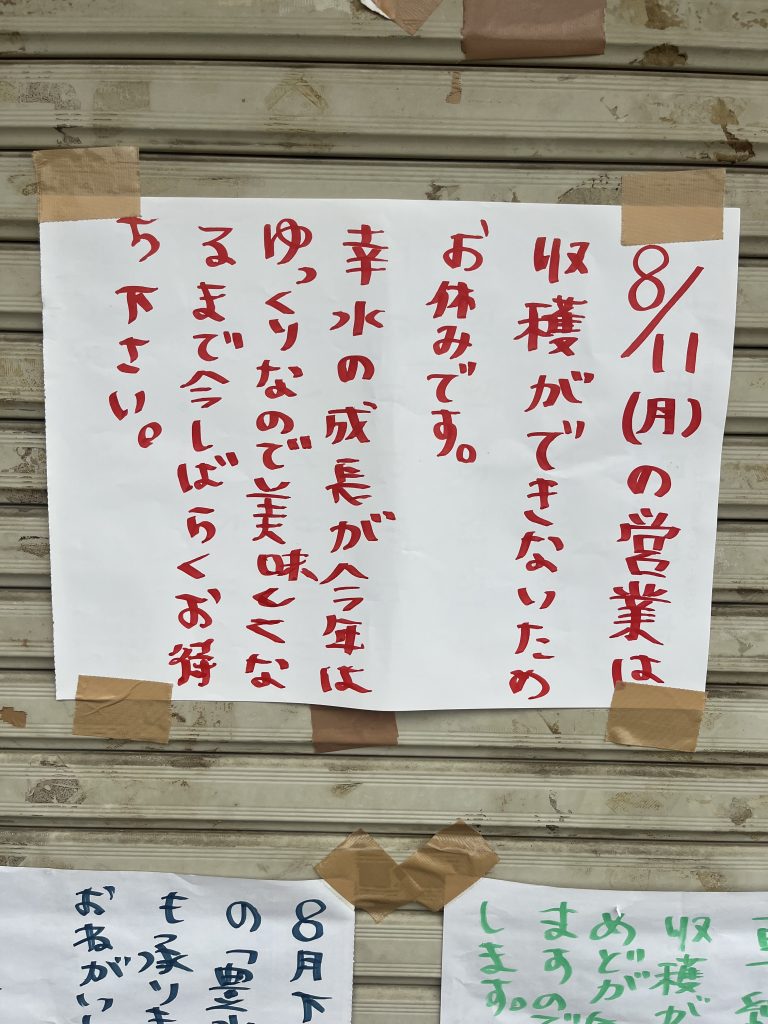 8/11(月)の営業は
収穫ができないため
お休みです。
幸水の成長が今年は
ゆっくりなので美味しくな
るまで今しばらくお待
ち下さい。
収穫が
めどが
ますので
します。
8月下
の「豊水
も承りま
おねがいし